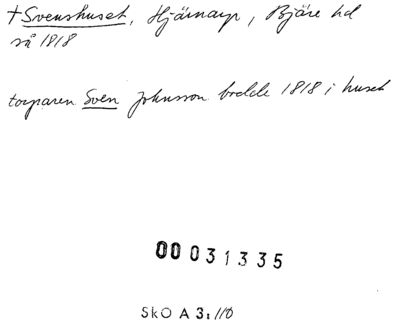 †Svenshuset, Hjärnarp, Bjäre hd
så 1818
torparen Sven Johnsson bodde 1818 i huset
00031335
SkO A 3:110